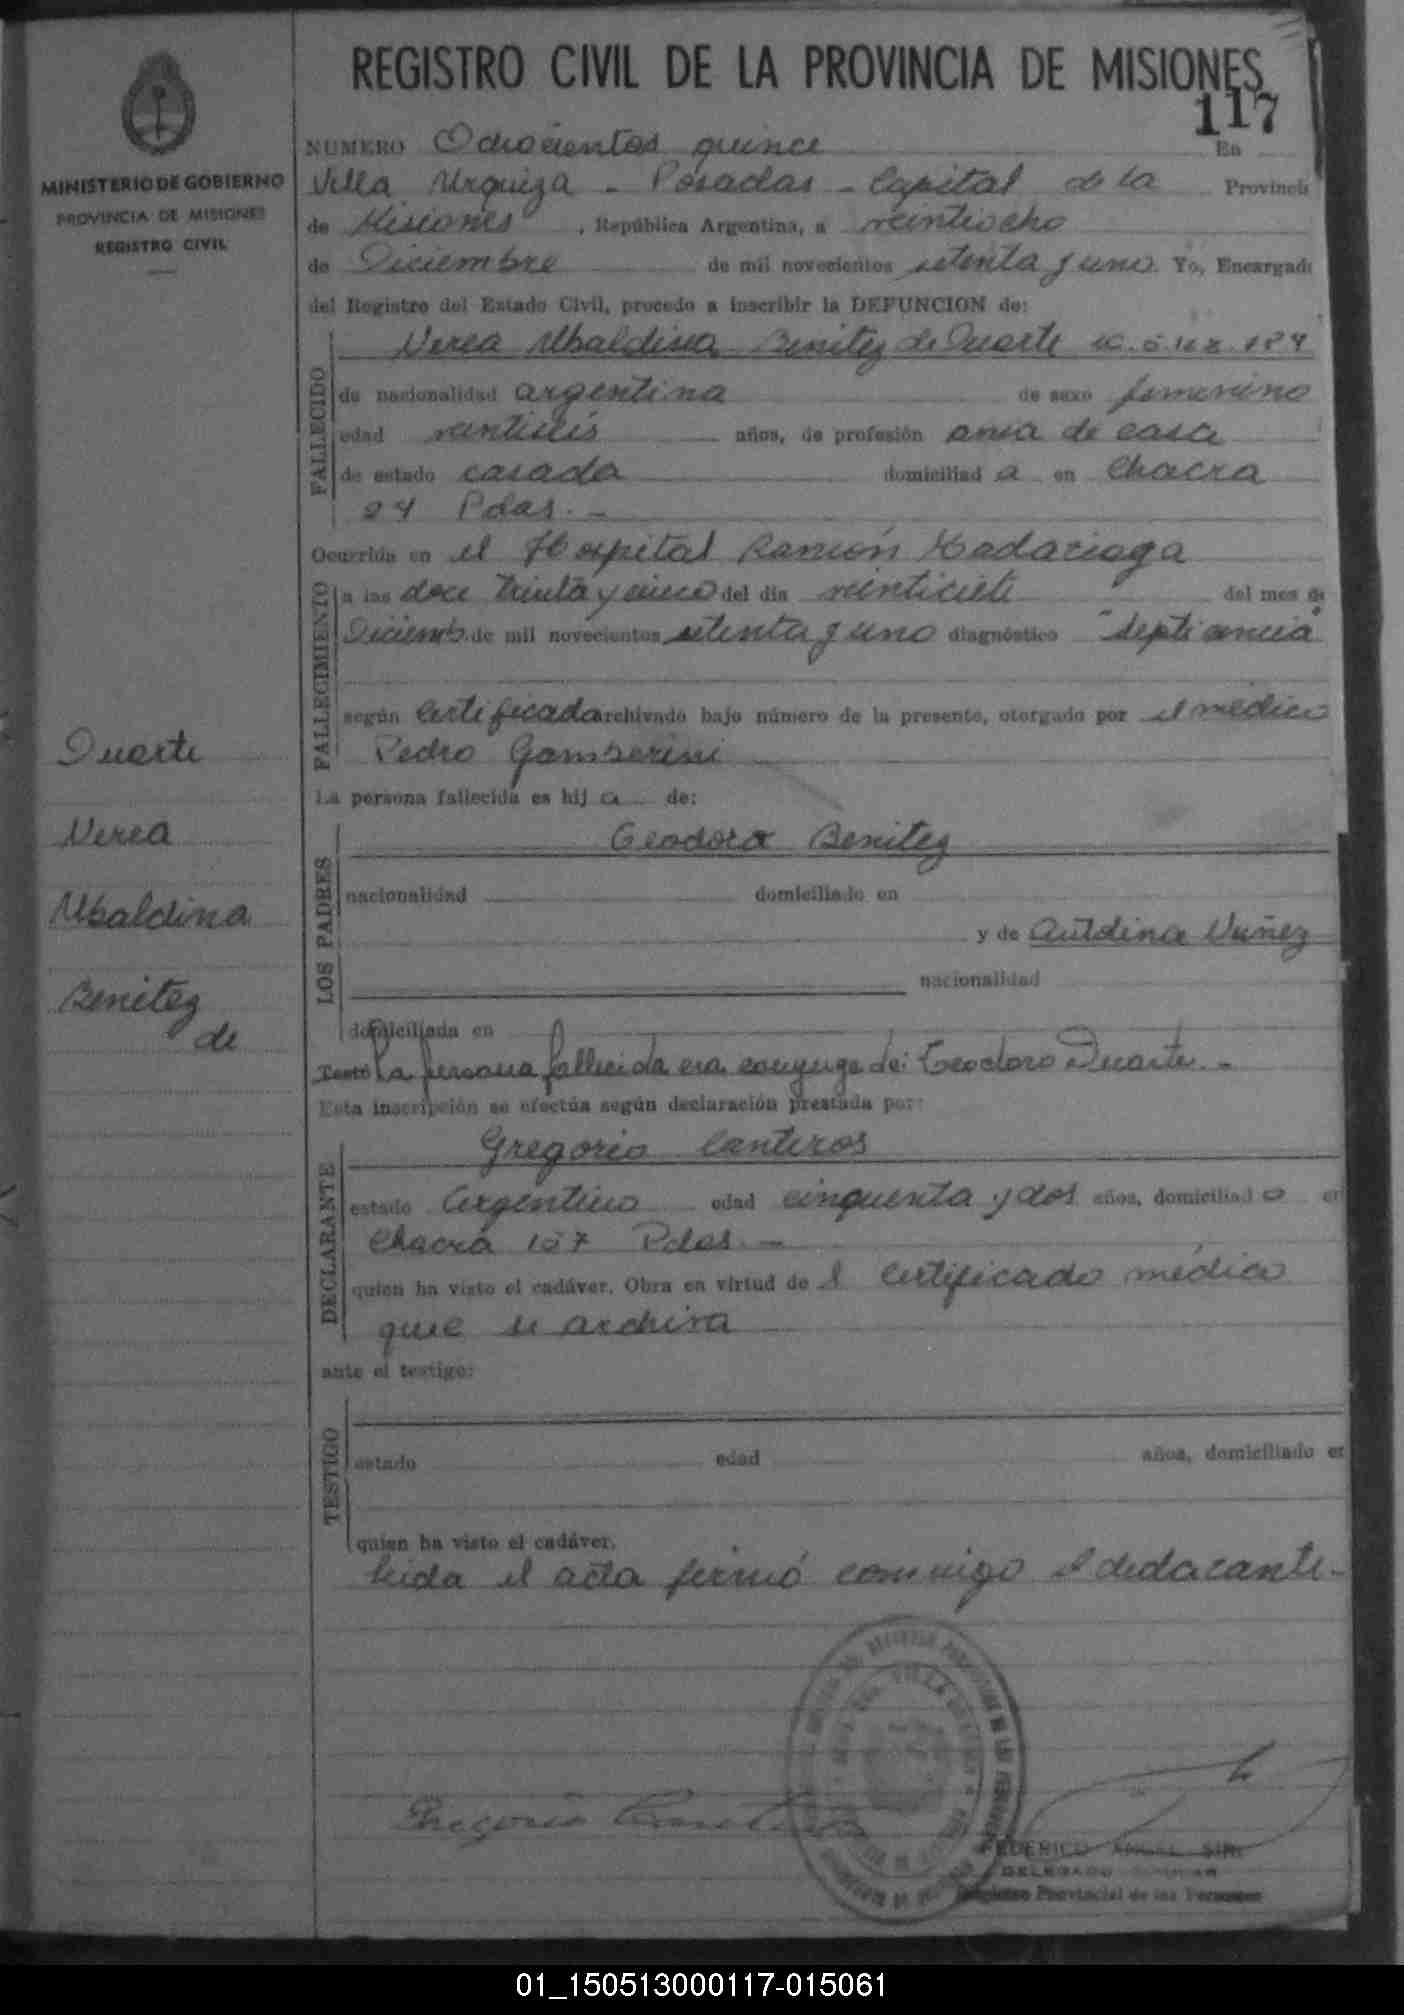 REGISTRO CIVIL DE LA PROVINCIA DE MISIONES
117
MINISTERIO DE GOBIERNO
PROVINCIA DE MISIONES
REGISTRO CIVIL
NUMERO Ochocientos quince En
Villa Urquiza - Posadas - Capital de la Provinci
de Misiones, República Argentina, a veintiocho
de Diciembre de mil novecientos setenta y uno. Yo, Encargad
del Registro del Estado Civil, procedo a inscribir la DEFUNCION de:
FALLECIDO
Nerea Ubaldina Benitez de Duarte
de nacionalidad argentina de sexo femenino
edad veintiseis años, de profesión ama de casa
de estado casada domiciliad a en Chacra
24 Pdas. -
FALLECIMIENTO
Ocurrida en el Hospital Ramón Madariaga
a las doce treinta y cinco del día veintisiete del mes de
Diciemb. de mil novecientos setenta y uno diagnóstico "septicemia"
según certificado archivado bajo número de la presente, otorgado por el médico
Pedro Gamberini
La persona fallecida es hij a de:
LOS PADRES
Teodoro Benitez
nacionalidad domiciliado en
y de Autdina Nuñez
nacionalidad
domiciliada en
La persona fallecida era conyuge de: Teodoro Duarte. -
Esta inscripción se efectúa según declaración prestada por:
DECLARANTE
Gregorio Canteros
estado Argentino edad cinquenta y dos años, domiciliad o en
Chacra 107 Pdas. -
quien ha visto el cadáver. Obra en virtud de l certificado médico
que se archiva
ante el testigo:
TESTIGO
estado edad años, domiciliado en
quien ha visto el cadáver.
Leida el acta firmó conmigo el declarante. -
Duarte
Nerea
Ubaldina
Benitez
de
Gregorio
FEDERICO ANGEL
DELEGADO
Registro Provincial de las Personas
01_150513000117-015061